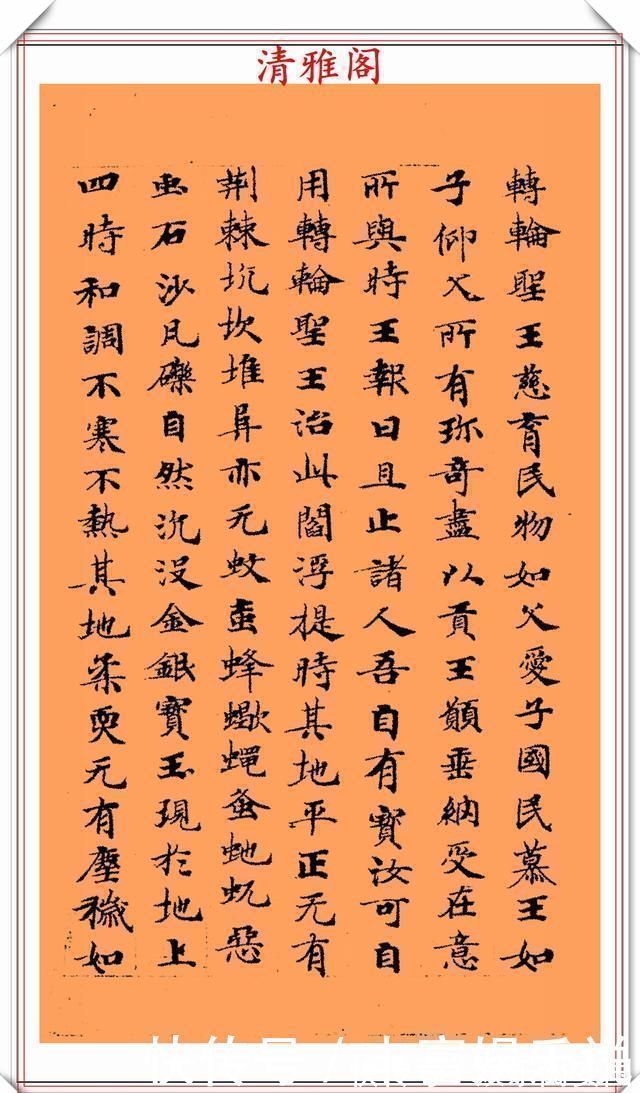 清雅阁
轉輪聖王慈育民物如父愛子國民慕王如
子仰父所有珎奇盡以貢王願垂納受在意
所與時王報曰且止諸人吾自有寶汝可自
用轉輪聖王治此閻浮提時其地平正无有
荆棘坑坎堆阜亦无蚊虻蜂蠍蠅蚤虵蚖惡
虫石沙凡礫自然沉没金銀寶玉現於地上
四時和調不寒不熱其地柔耎无有塵穢如